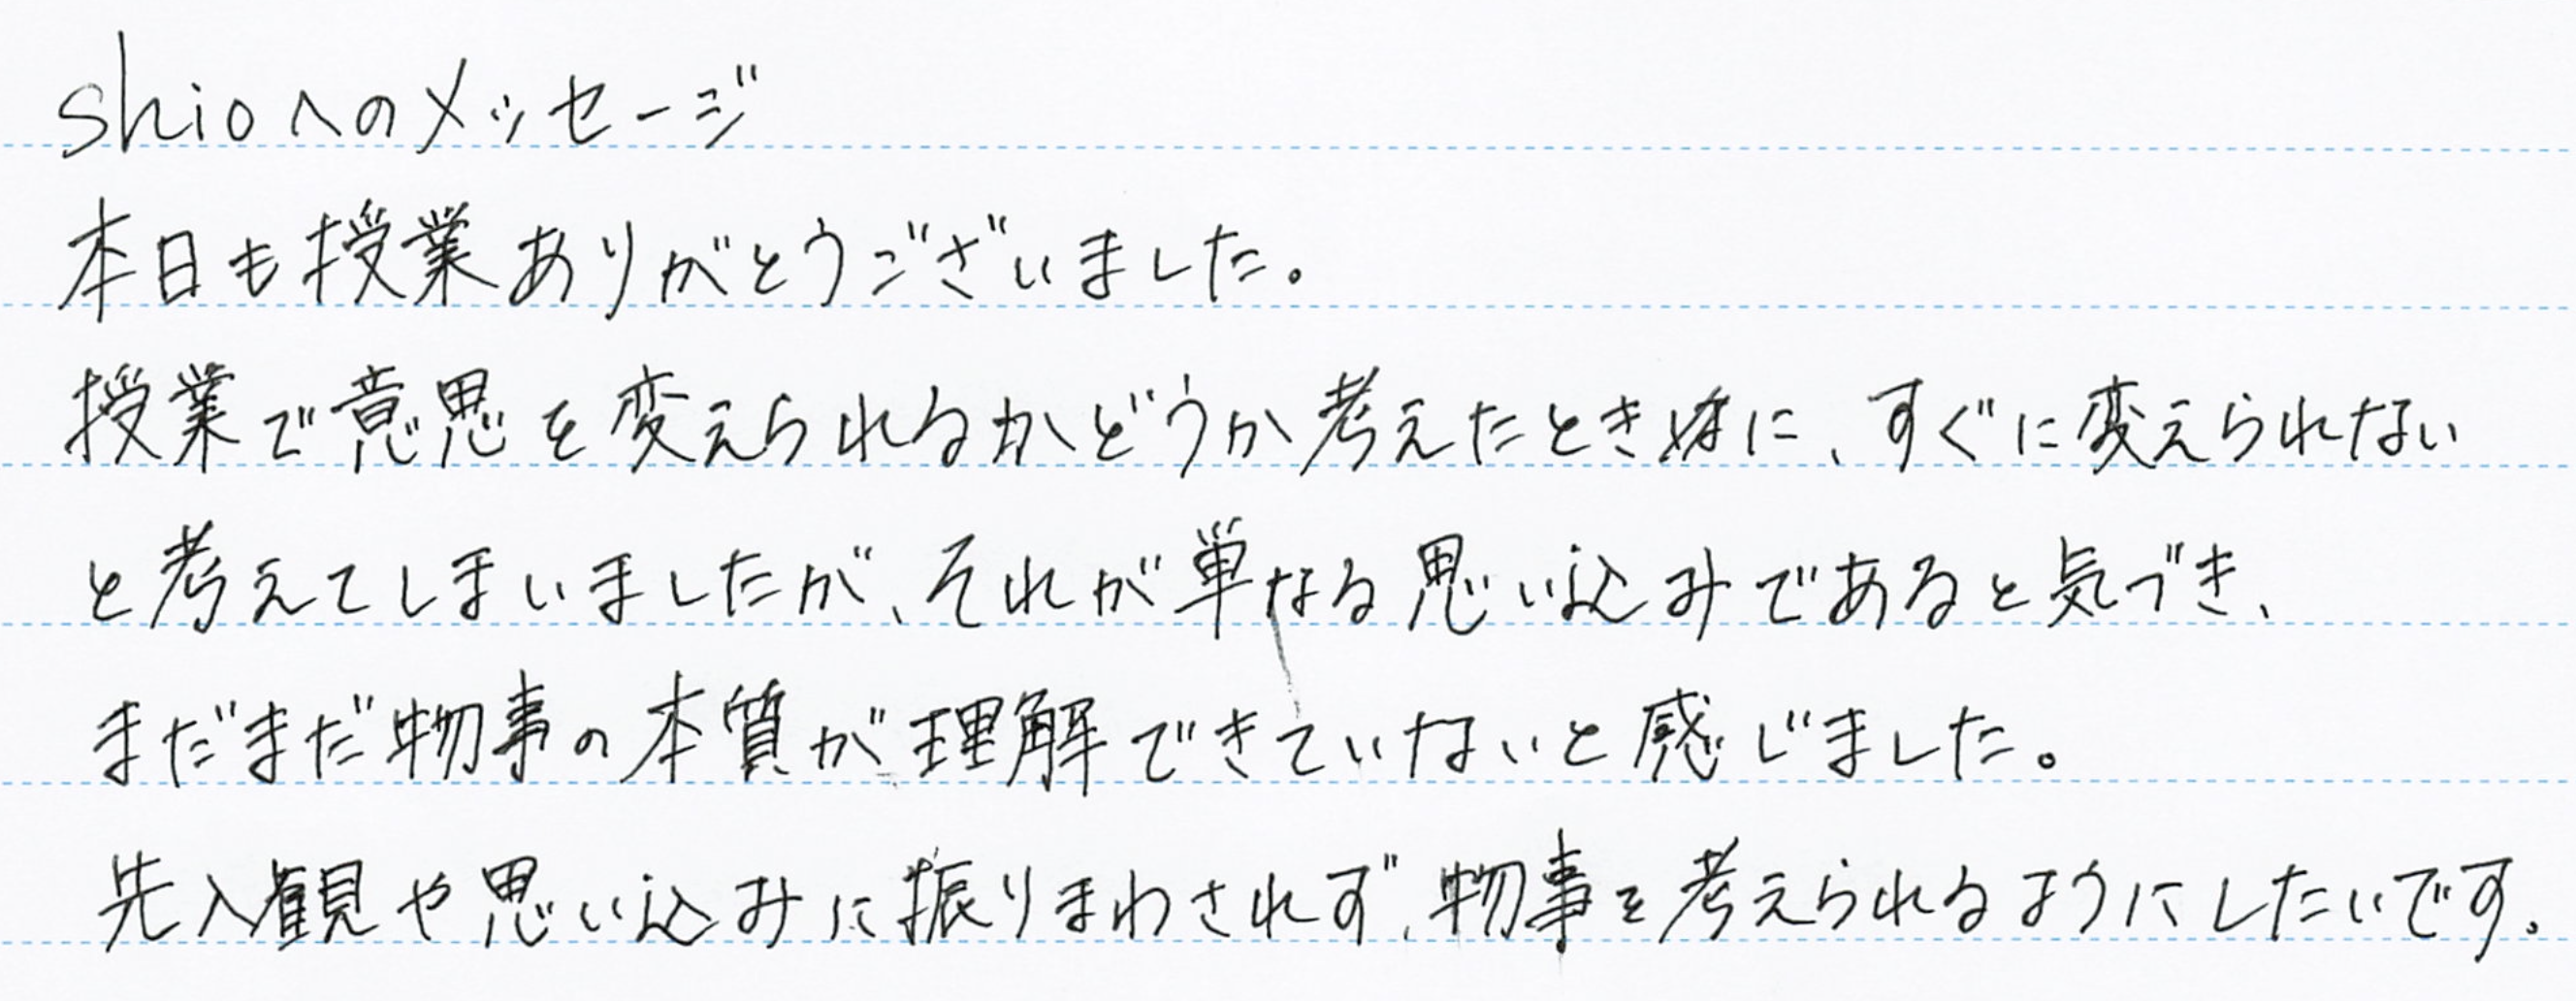 shioへのメッセージ
本日も授業ありがとうございました。
授業で意思を変えられるかどうか考えたときに、すぐに変えられない
と考えてしまいましたが、それが単なる思い込みであると気づき、
まだまだ物事の本質が理解できていないと感じました。
先入観や思い込みに振りまわされず、物事を考えられるようにしたいです。